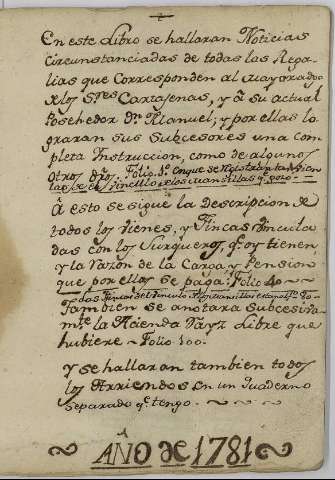 En este Libro se hallaran Noticias
circunstanciadas de todas las Rega-
lias que corresponden al mayorasgo
de los S.res Cartajenas, y à su actual
Poshehedor D.n Manuel; y por ellas lo-
graran sus Subcesores una com-
pleta Instruccion, como de algunos
otros dños. Folio 1.º en que se
à esto se sigue la Descripcion de
todos los vienes, y Fincas vincula-
das con los Surqueros, q.e oy tienen,
y la Razon de la Carga, y Pension
que por ellos se paga: Folio 40
Tambien se anotara Subcesiva-
m.te la Hacienda Rayz Libre que
hubiere - Folio 100.
Y se hallaran tambien todos
los Arriendos en un Quaderno
separado q.e tengo.
AÑO de 1781